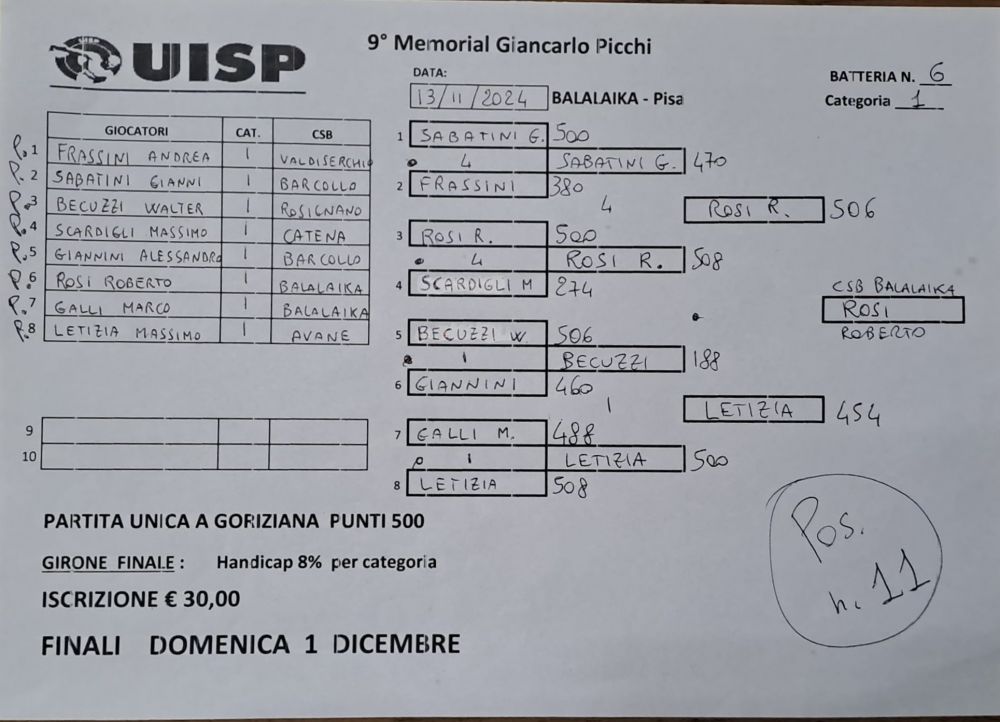 UISP
9° Memorial Giancarlo Picchi
DATA:
13/11/2024 BALALAIKA - Pisa
BATTERIA N. 6
Categoria 1
GIOCATORI CAT. CSB
P. 1 FRASSINI ANDREA 1 VALDISERCHIO
P. 2 SABATINI GIANNI 1 BARCOLLO
P. 3 BECUZZI WALTER 1 ROSIGNANO
P. 4 SCARDIGLI MASSIMO 1 CATENA
P. 5 GIANNINI ALESSANDRO 1 BARCOLLO
P. 6 ROSI ROBERTO 1 BALALAIKA
P. 7 GALLI MARCO 1 BALALAIKA
P. 8 LETIZIA MASSIMO 1 AVANE
9
10
1 SABATINI G. 500
4 SABATINI G. 470
2 FRASSINI 380
4 ROSI R. 506
3 ROSI R. 500
4 ROSI R. 508
4 SCARDIGLI M 274
CSB BALALAIKA
ROSI
ROBERTO
5 BECUZZI W. 506
1 BECUZZI 188
6 GIANNINI 460
1 LETIZIA 454
7 GALLI M. 488
1 LETIZIA 500
8 LETIZIA 508
PARTITA UNICA A GORIZIANA PUNTI 500
GIRONE FINALE : Handicap 8% per categoria
ISCRIZIONE € 30,00
FINALI DOMENICA 1 DICEMBRE
Pos.
n. 11